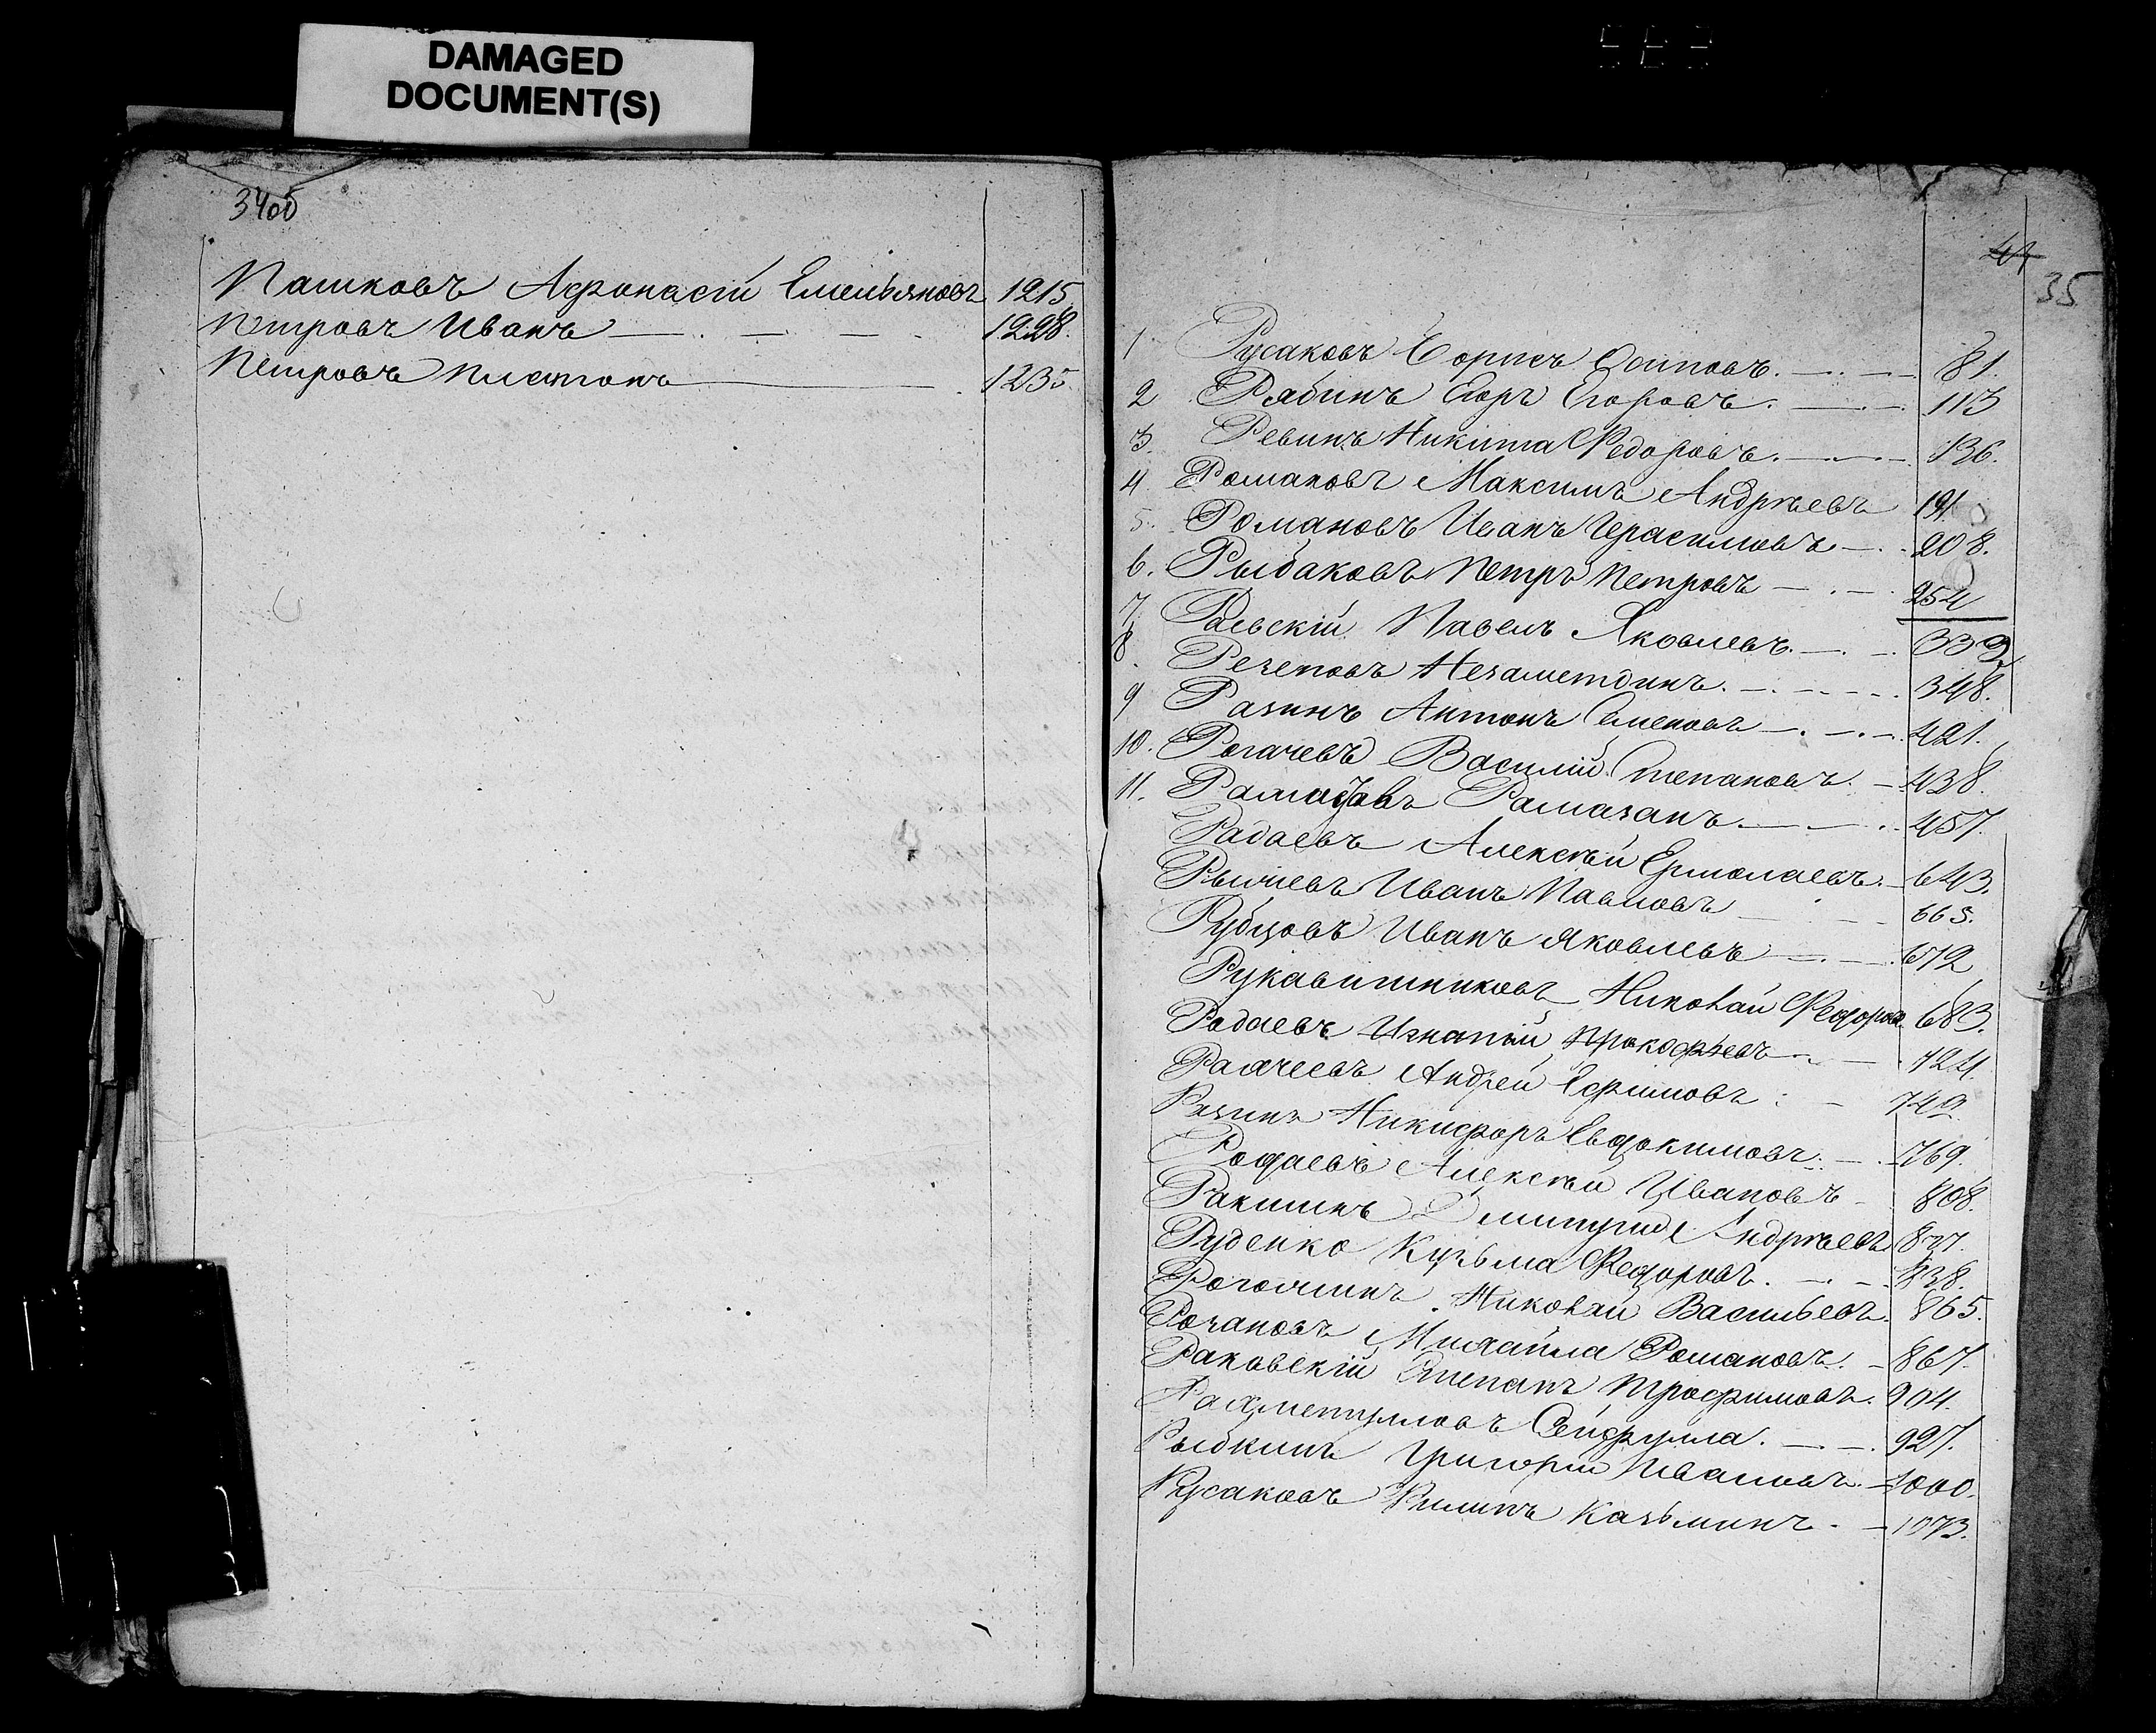 DAMAGED
DOCUMENT(S)
34об
Пашковъ Афонасій Емельяновъ 1215
Петровъ Иванъ 1228.
Петровъ Платонъ 1235.
41
35
1 Русаковъ Борисъ Осиповъ. 81.
2 Рябинъ Егоръ Егоровъ. 113
3. Ревинъ Никита Федоровъ. 136.
4 Романовъ Максимъ Андреевъ 191.
5. Романовъ Иванъ Герасимовъ 208.
6. Рыбаковъ Петръ Петровъ 254
7. Рыльскій Павелъ Яковлевъ. 339
8. Резеповъ Незаметдинъ. 348.
9 Разинъ Антонъ Семеновъ 421.
10. Рогачевъ Василій Степановъ. 438.
11. Рамазовъ Рамазанъ. 457.
Радаевъ Алексѣй Ермолаевъ. 643.
Рычневъ Иванъ Павловъ 665.
Рубцовъ Иванъ Яковлевъ 672
Рукавишниковъ Николай Федоровъ 683.
Радаевъ Игнатій Прокофьевъ 724.
Андрей Ефимовъ 749
Разинъ Никифоръ Евдокимовъ. 769.
Родаевъ Алексѣй Ивановъ 808.
Ракшинъ Дмитрій Андреевъ 827.
Руденко Кузьма Федоровъ. 838.
Рогожинъ Николай Васильевъ. 865.
Михайла Романовъ. 867.
Раковскій Степанъ Трофимовъ. 904.
Рахметуловъ Сейфулла. 927.
Рыбкинъ Григорій Ивановъ. 1000.
Русаковъ Филипъ Казьминъ. 1073.